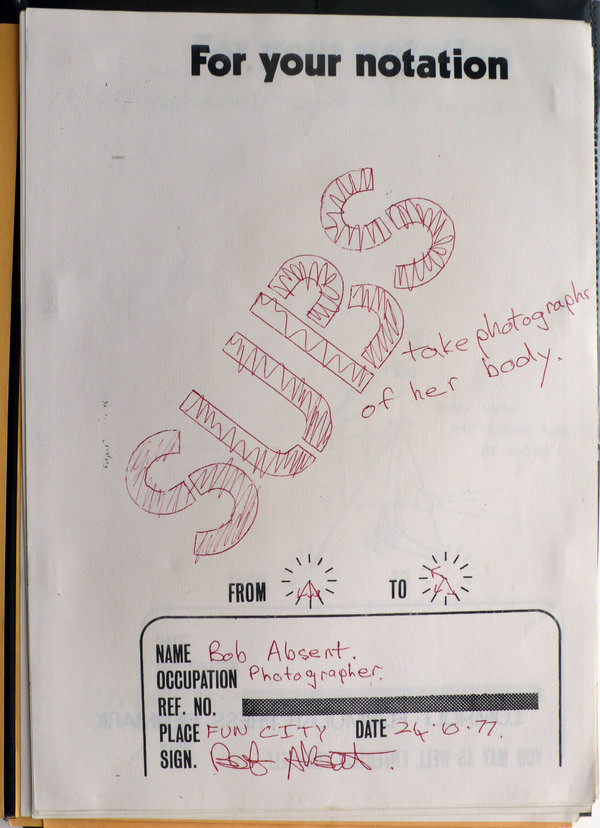 For your notation
SUBS
take photographs
of her body.
FROM TO
NAME Bob Absent.
OCCUPATION Photographer.
REF. NO.
PLACE FUN CITY DATE 24.6.77.
SIGN. Bob Absent.